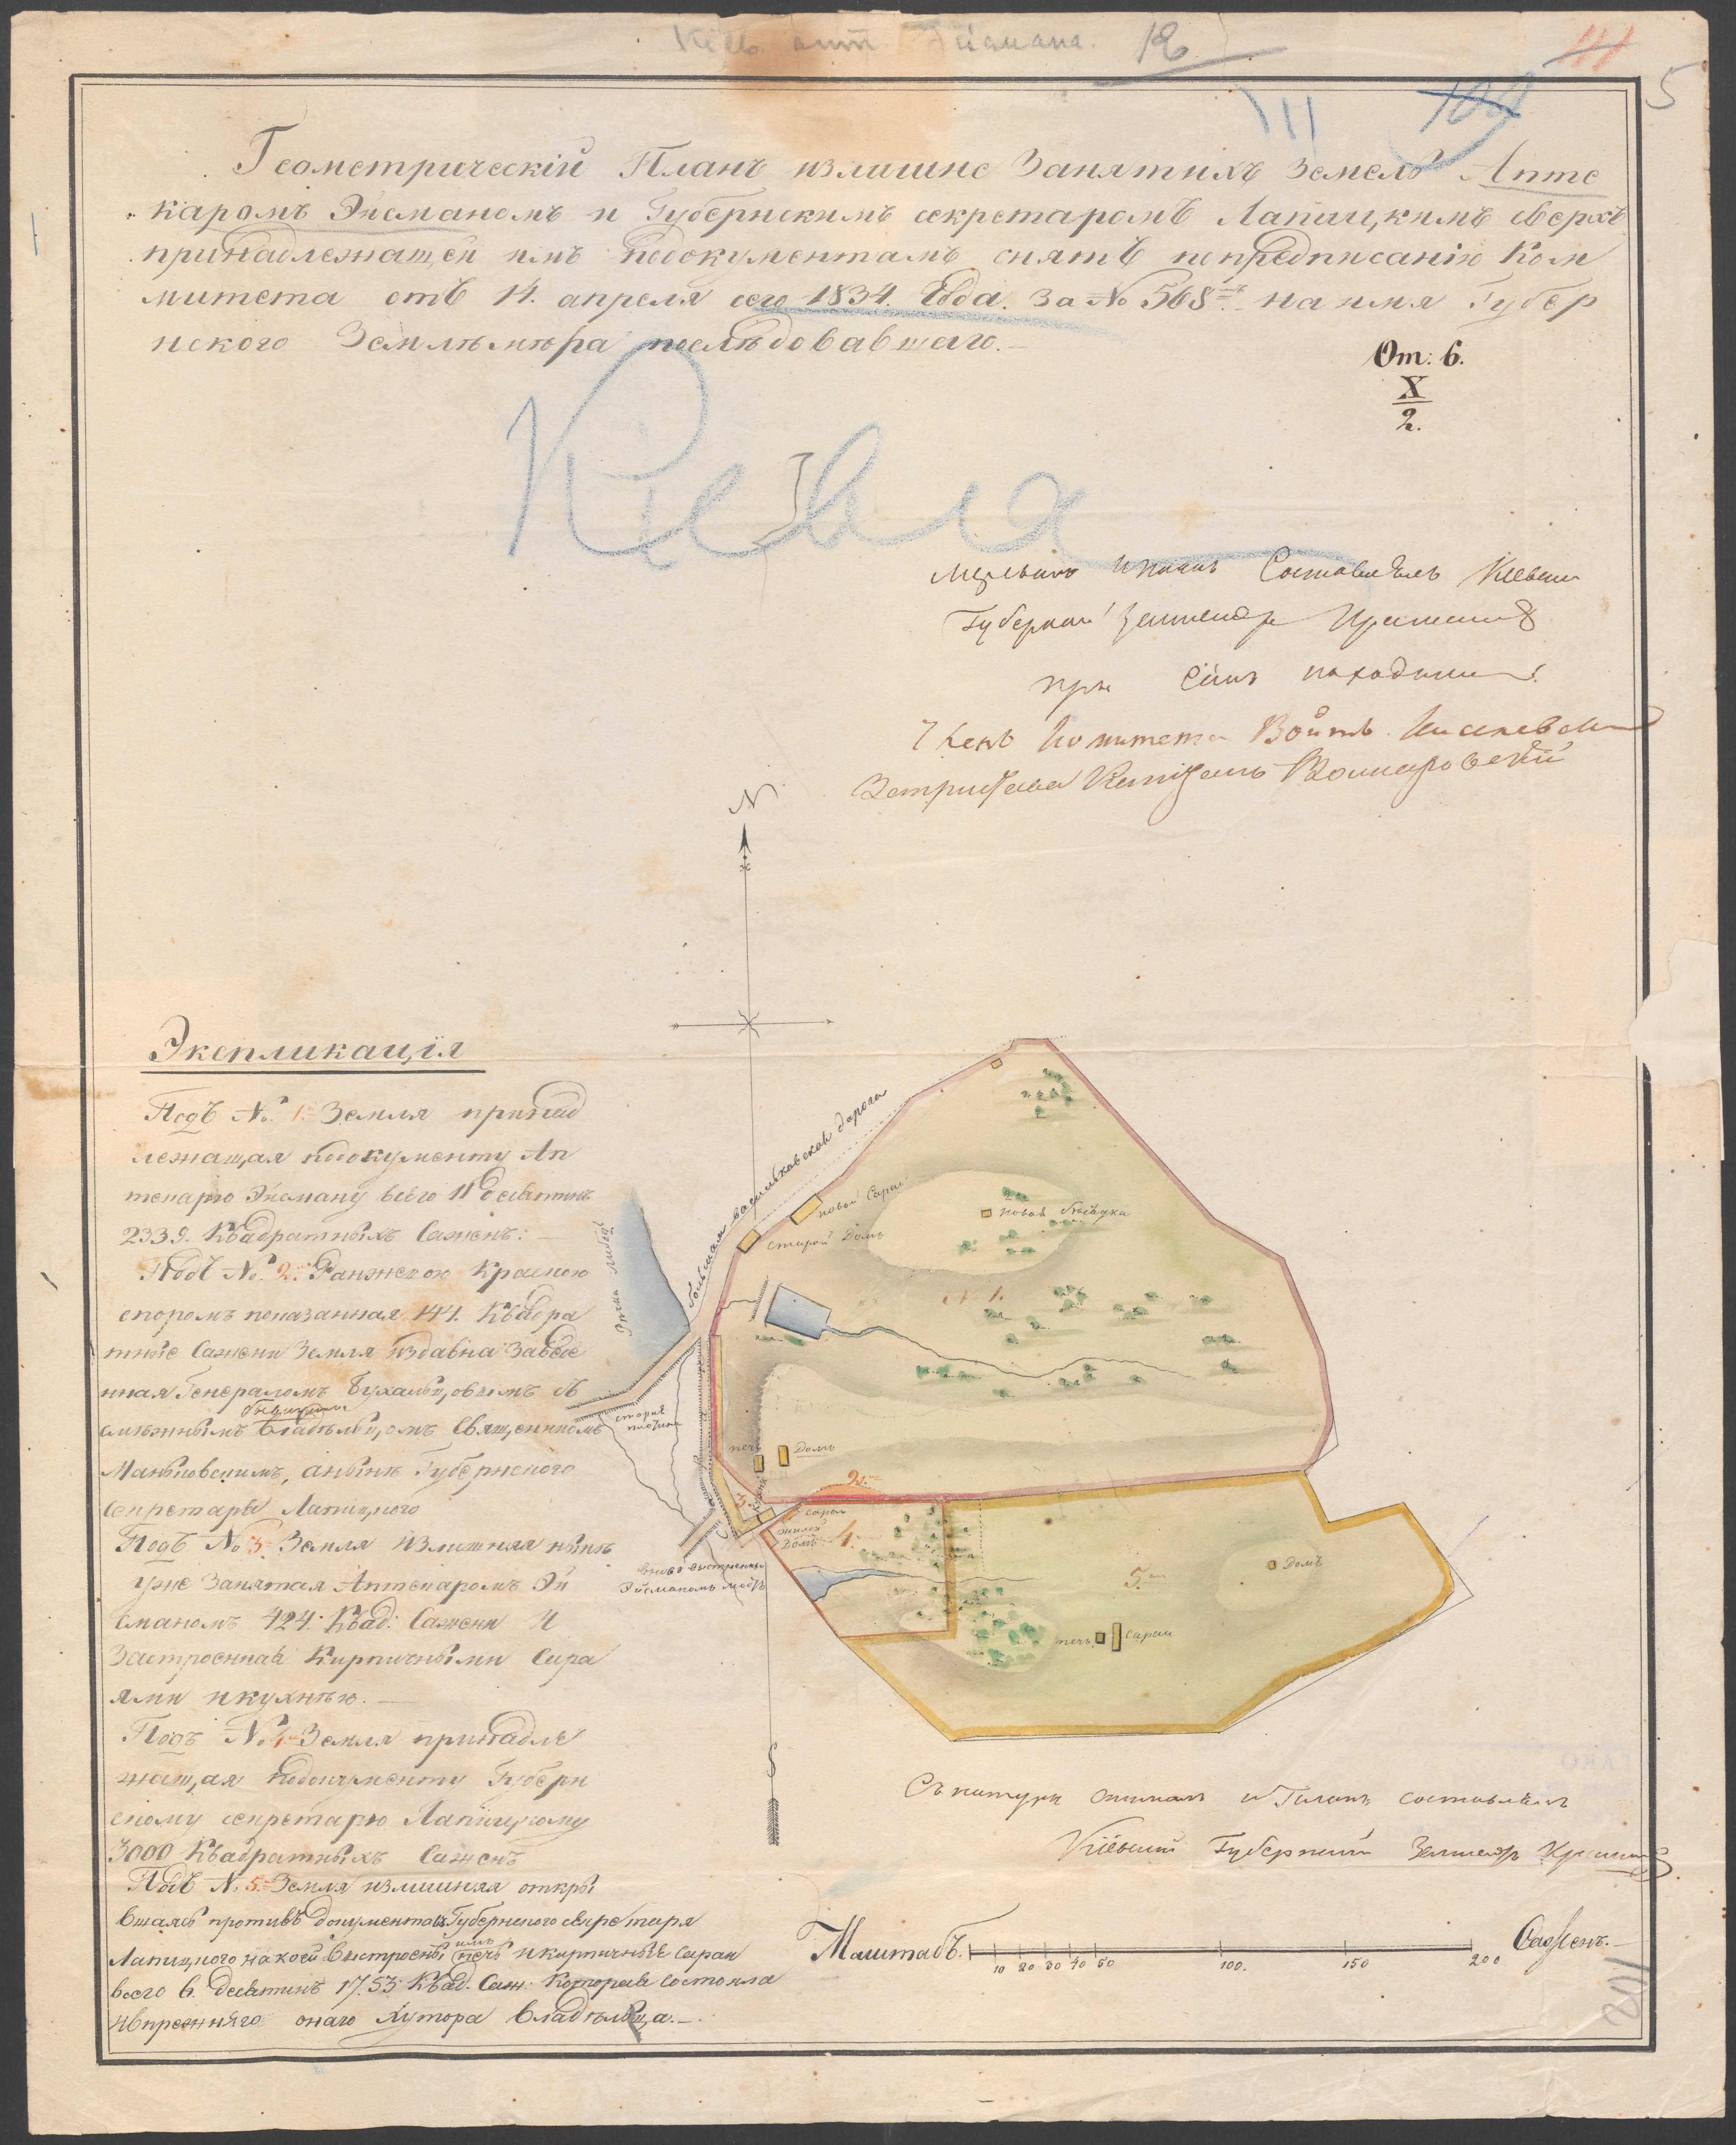 Кіев. апт. Эйсмана. 12
111
III
5
Геометрическій Планъ излишне Занятыхъ Земель Апте
каромъ Эйсманомъ и Губернскимъ секретаромъ Лапицкимъ сверхъ
принадлежащей имъ подокументамъ снятъ попредписанію Ком
митета отъ 14. апреля сего 1834. Года. За № 568м. на имя Губер
нского Землемѣра последовавшаго.
От: 6.
X
2.
Кіева
Составлялъ Кіевскій
Губернскій Землемеръ
при семъ находились
Членъ Комитета Войтъ Киселевскій
N
Экспликація
Подъ № 1. Земля принад
лежащая подокументу Ап
текарю Эйсману всего 11 десятинъ
2339. Квадратныхъ Саженъ:
Подъ № 2. Ранжевою Красною
споромъ показанная 144. Квадра
тные Сажени Земля издавна Завѣде
нная Генераломъ Бухальцовымъ съ
бывшимъ
смѣжнымъ Владѣльцомъ Священникомъ
Маньковскимъ, анынѣ Губернского
Секретаря Лапицкого
Подъ № 3. Земля Излишняя нынѣ
уже Занятая Аптекаромъ Эй
сманомъ 424: Квад: Сажени И
Застроенная Кирпичными Сара
ями икухнѣю.
Подъ № 4 Земля принадле
жащая подокументу Губерн
скому секретарю Лапицкому
3000 Квадратныхъ Саженъ
Подъ №. 5. Земля излишняя откры
вшаясь противъ документовъ Губернского секретаря
имъ
Лапицкого на коей выстроены печь икирпичные сараи
всего 6. Десятинъ 17.53 Квад. Саж. Которая состояла
ивпрежняго онаго Хутора Владѣльца.
большая васильковская дорога
Рѣчка Либедь
новой Сарай
старой Домъ
новая бесѣдка
№ 1.
старая
плотина
печь
Домъ
2.
3.
кухня
сарай
жилой
Домъ
4.
вновь выстроены
Эйсманомъ мостъ
5.
Домъ
печь
сараи
S
Съ натуры снималъ и Планъ составлялъ
Кіевскій Губернскій Землемеръ
Маштабъ.
10 20 30 40 50 100. 150 200
Саженъ.
108